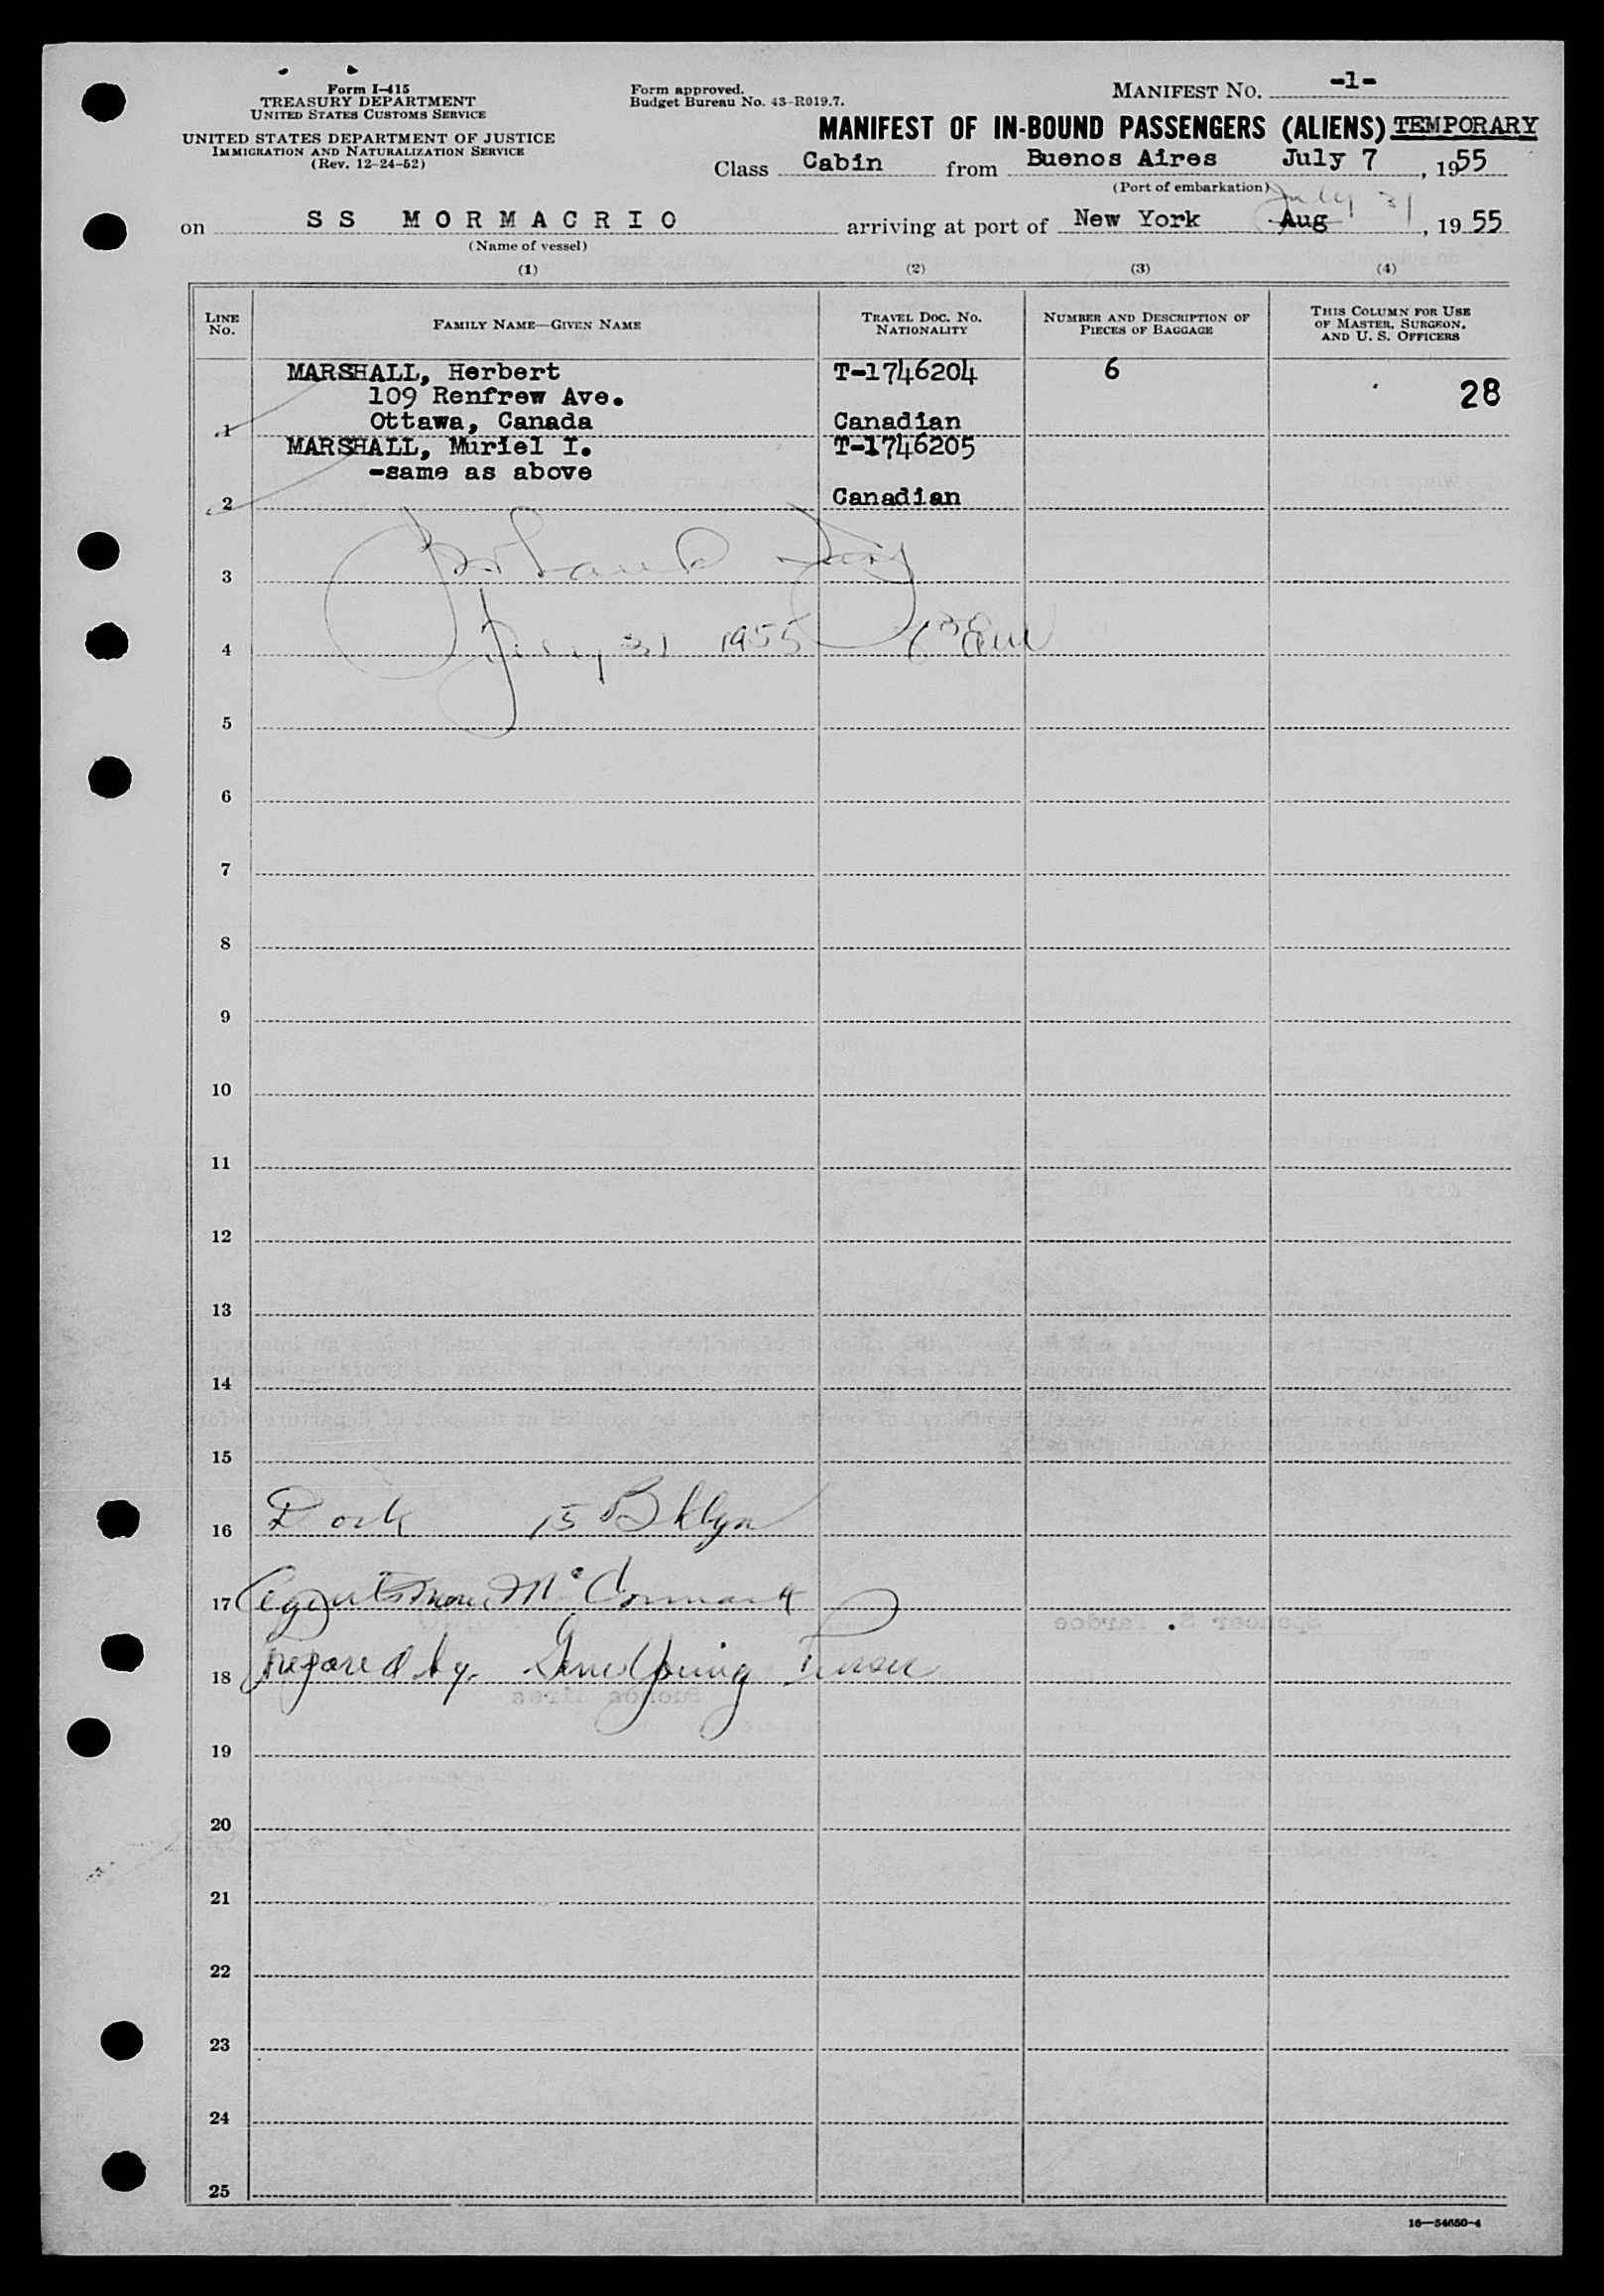 Form I-415
TREASURY DEPARTMENT
UNITED STATES CUSTOMS SERVICE
UNITED STATES DEPARTMENT OF JUSTICE
IMMIGRATION AND NATURALIZATION SERVICE
(Rev. 12-24-52)
Form approved.
Budget Bureau No. 43-R019.7.
MANIFEST NO. -1-
MANIFEST OF IN-BOUND PASSENGERS (ALIENS) TEMPORARY
Class Cabin from Buenos Aires July 7, 1955
(Port of embarkation)
July 31
on SS MORMACRIO arriving at port of New York Aug, 1955
(Name of vessel)
(1) (2) (3) (4)
LINE No. FAMILY NAME—GIVEN NAME TRAVEL DOC. NO. NATIONALITY NUMBER AND DESCRIPTION OF PIECES OF BAGGAGE THIS COLUMN FOR USE OF MASTER, SURGEON, AND U. S. OFFICERS
MARSHALL, Herbert T-1746204 6
109 Renfrew Ave. 28
1 Ottawa, Canada Canadian
MARSHALL, Muriel I. T-1746205
-same as above
2 Canadian
3
4 July 31 1955 6 30 am
5
6
7
8
9
10
11
12
13
14
15
16 Dock 15 Bklyn
17 Agents Moore McCormack
18 Prepared by. Gene Young Purser
19
20
21
22
23
24
25
16—54650-4